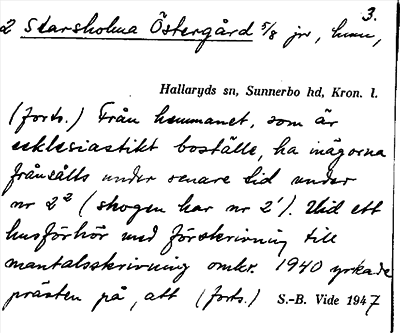 3.
2 Starsholma Östergård 5/8 jr, hmn,
Hallaryds sn, Sunnerbo hd, Kron. l.
(forts.) Från hemmanet, som är
ecklesiastikt boställe, ha inägorna
frånsålts under senare tid under
nr 2² (skogen har nr 2¹). Vid ett
husförhör med förskrivning till
mantalsskrivning omkr. 1940 yrkade
prästen på, att (forts.) S.-B. Vide 1947